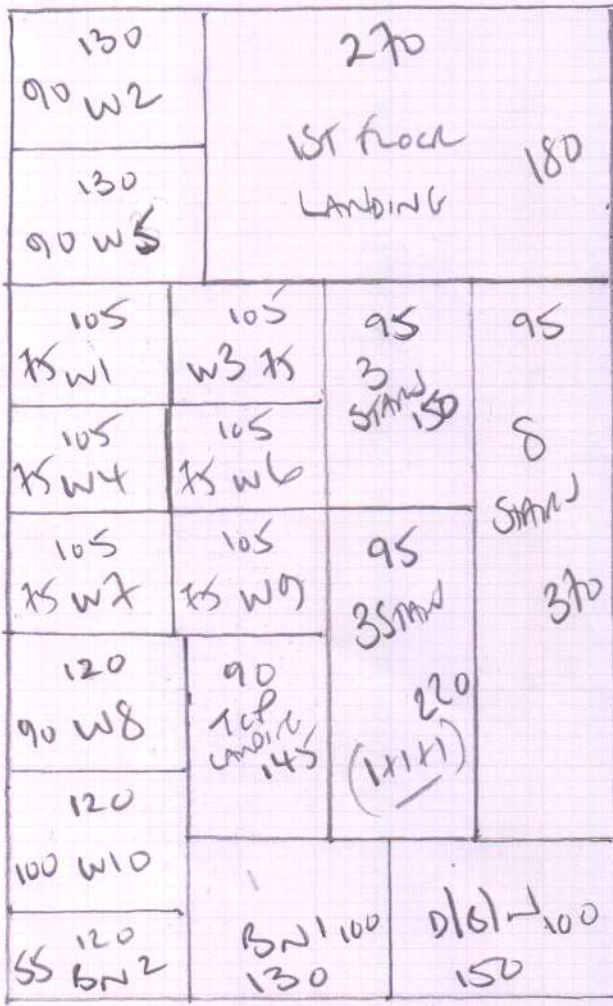 130
90 W2
270
1ST FLOOR
LANDING
180
130
90 W5
105
75 W1
105
W3 75
95
3
STAIRS
150
95
8
STAIRS
370
105
75 W4
105
75 W6
105
75 W7
105
75 W9
95
3 STAIRS
220
(1+1+1)
120
90 W8
90
TOP
LANDING
145
120
100 W10
120
55 BN2
BN1 100
130
100
150